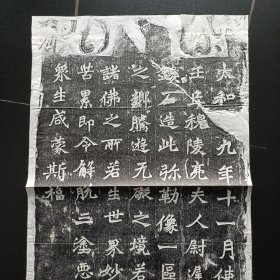 太和九年十一月使
王丘穆陵亮夫人尉遲
鏤石造此弥勒像一區
之鄉騰遊无礙之境若
諸佛之所若生世界妙
苦累即令解脫三塗惡
衆生咸蒙斯福